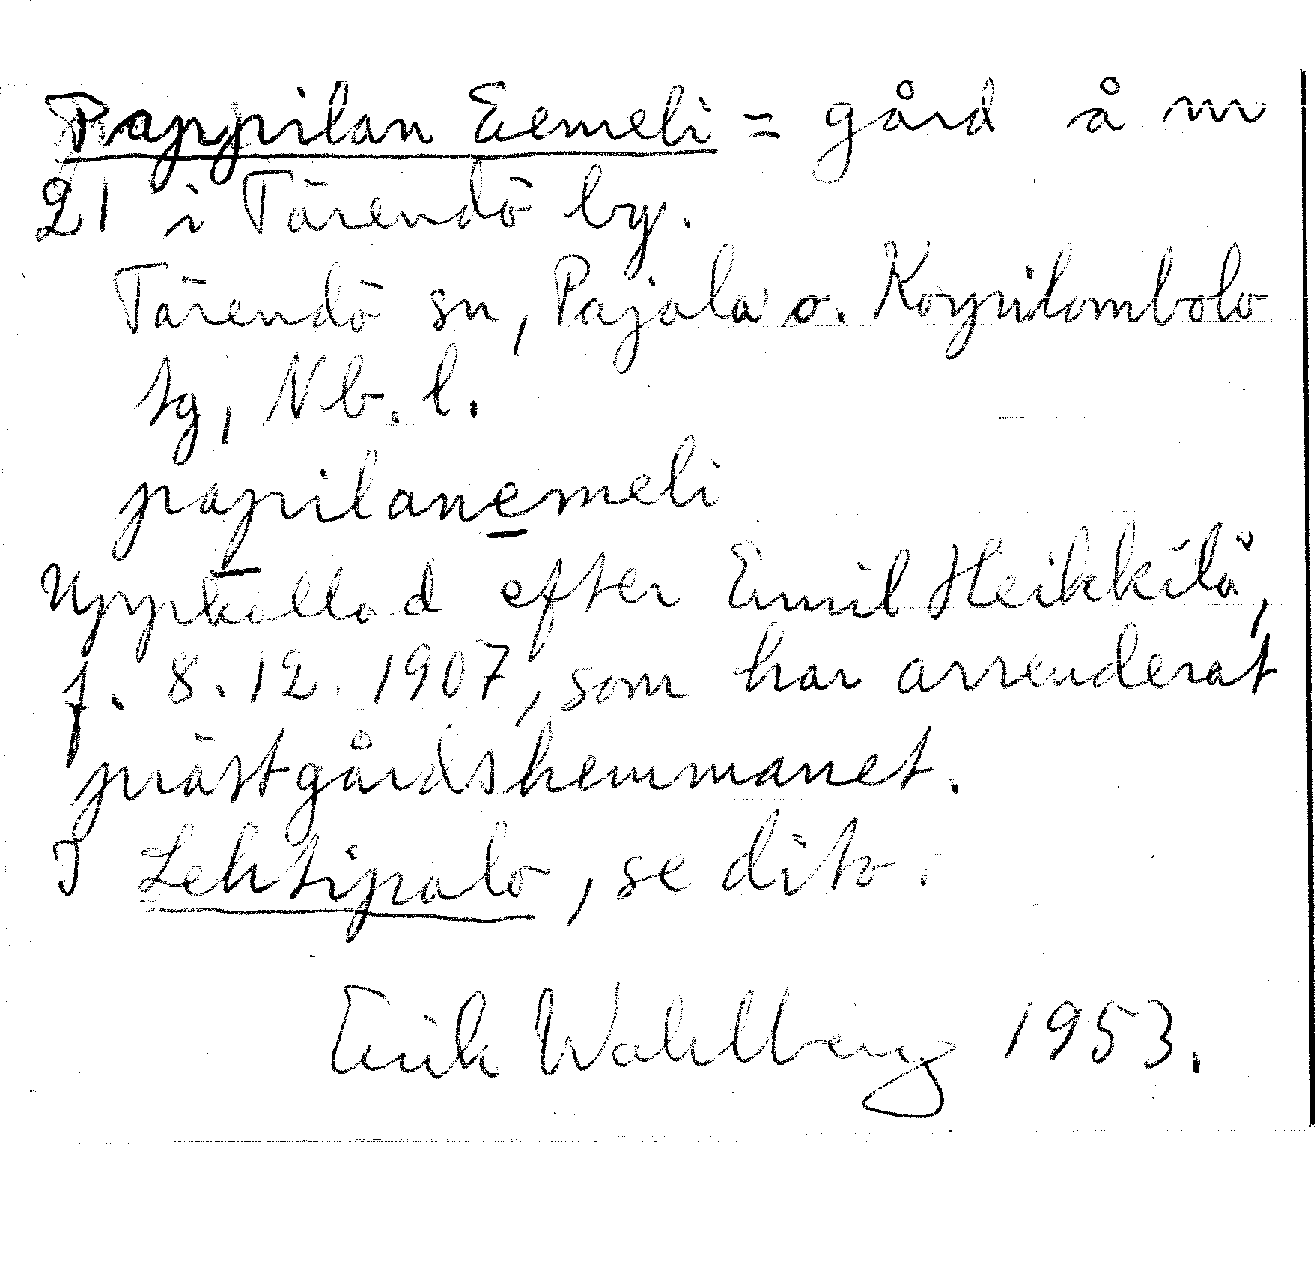 Pappilan Eemeli = gård å m
21 i Tärendö by.
Tärendö sn, Pajala o. Korpilombolo
tg, Nb. l.
papilanemeli
Uppkallad efter Emil Heikkilä,
f. 8.12.1907, som har arrenderat
prästgårdshemmanet.
I Lehtipalo, se dito.
Erik Wahlberg 1953.